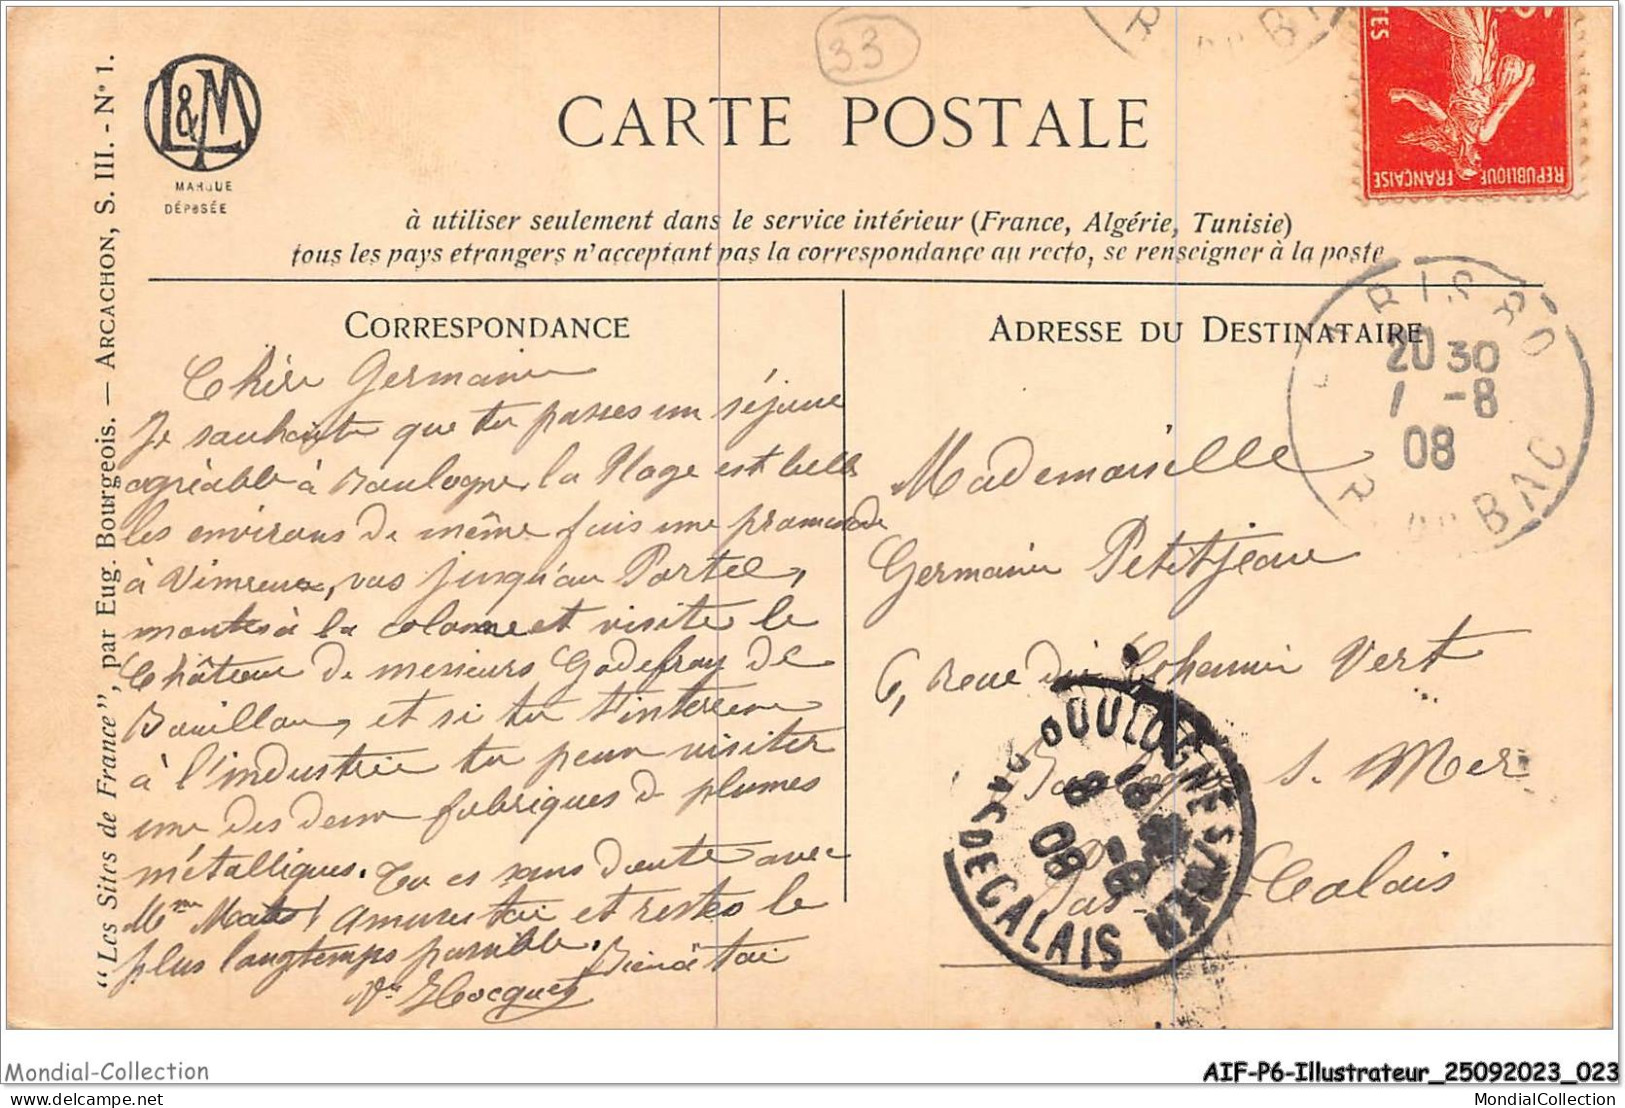 33
L&M
MARQUE
DÉPOSÉE
CARTE POSTALE
à utiliser seulement dans le service intérieur (France, Algérie, Tunisie)
tous les pays etrangers n'acceptant pas la correspondance au recto, se renseigner à la poste
"Les Sites de France", par Eug. Bourgeois. — ARCACHON, S. III. - N° 1.
CORRESPONDANCE
Chère Germaine
Je souhaite que tu passes un séjour
agréable à Boulogne, la Plage est belle
les environs de même fais une promenade
à Vimreux, vas jusqu'au Portel,
monte à la colonne et visite le
Château de messieurs Godefroy de
Bouillon, et si tu t'interesse
à l'industrie tu peux visiter
une des deux fabriques de plumes
métalliques. Tu es sans doute avec
Mme amuses toi et restes le
plus longtemps possible. Bien à toi
Hocquet
ADRESSE DU DESTINATAIRE
Mademoiselle
Germaine Petitjean
6, rue du Chemin Vert
Boulogne s. Mer
Pas-de-Calais
REPUBLIQUE FRANÇAISE
POSTES
PARIS
20 30
1 -8
08
R. DU BAC
BOULOGNE S/MER
8 08
PAS DE CALAIS
Mondial-Collection
AIF-P6-Illustrateur_25092023_023
MondialCollection